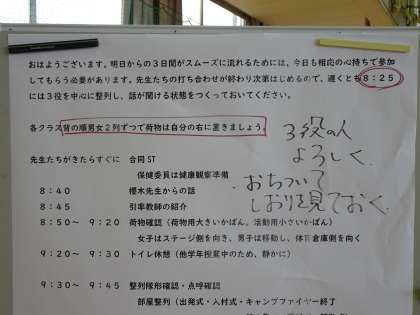 おはようございます。明日からの３日間がスムーズに流れるためには、今日も相応の心持ちで参加
してもらう必要があります。先生たちの打ち合わせが終わり次第はじめるので、遅くとも８：２５
には３役を中心に整列し、話が聞ける状態をつくっておいてください。
各クラス背の順男女２列ずつで荷物は自分の右に置きましょう。
３役の人
よろしく。
先生たちがきたらすぐに　合同ST
保健委員は健康観察準備
おちついて
しおりを見ておく。
８：４０　櫻木先生からの話
８：４５　引率教師の紹介
８：５０～　９：２０　荷物確認（荷物用大きいかばん、活動用小さいかばん）
女子はステージ側を向き、男子は移動し、体育倉庫側を向く
９：２０～　９：３０　トイレ休憩（他学年授業中のため、静かに）
９：３０～　９：４５　整列隊形確認・点呼確認
部屋整列（出発式・入村式・キャンプファイヤー終了